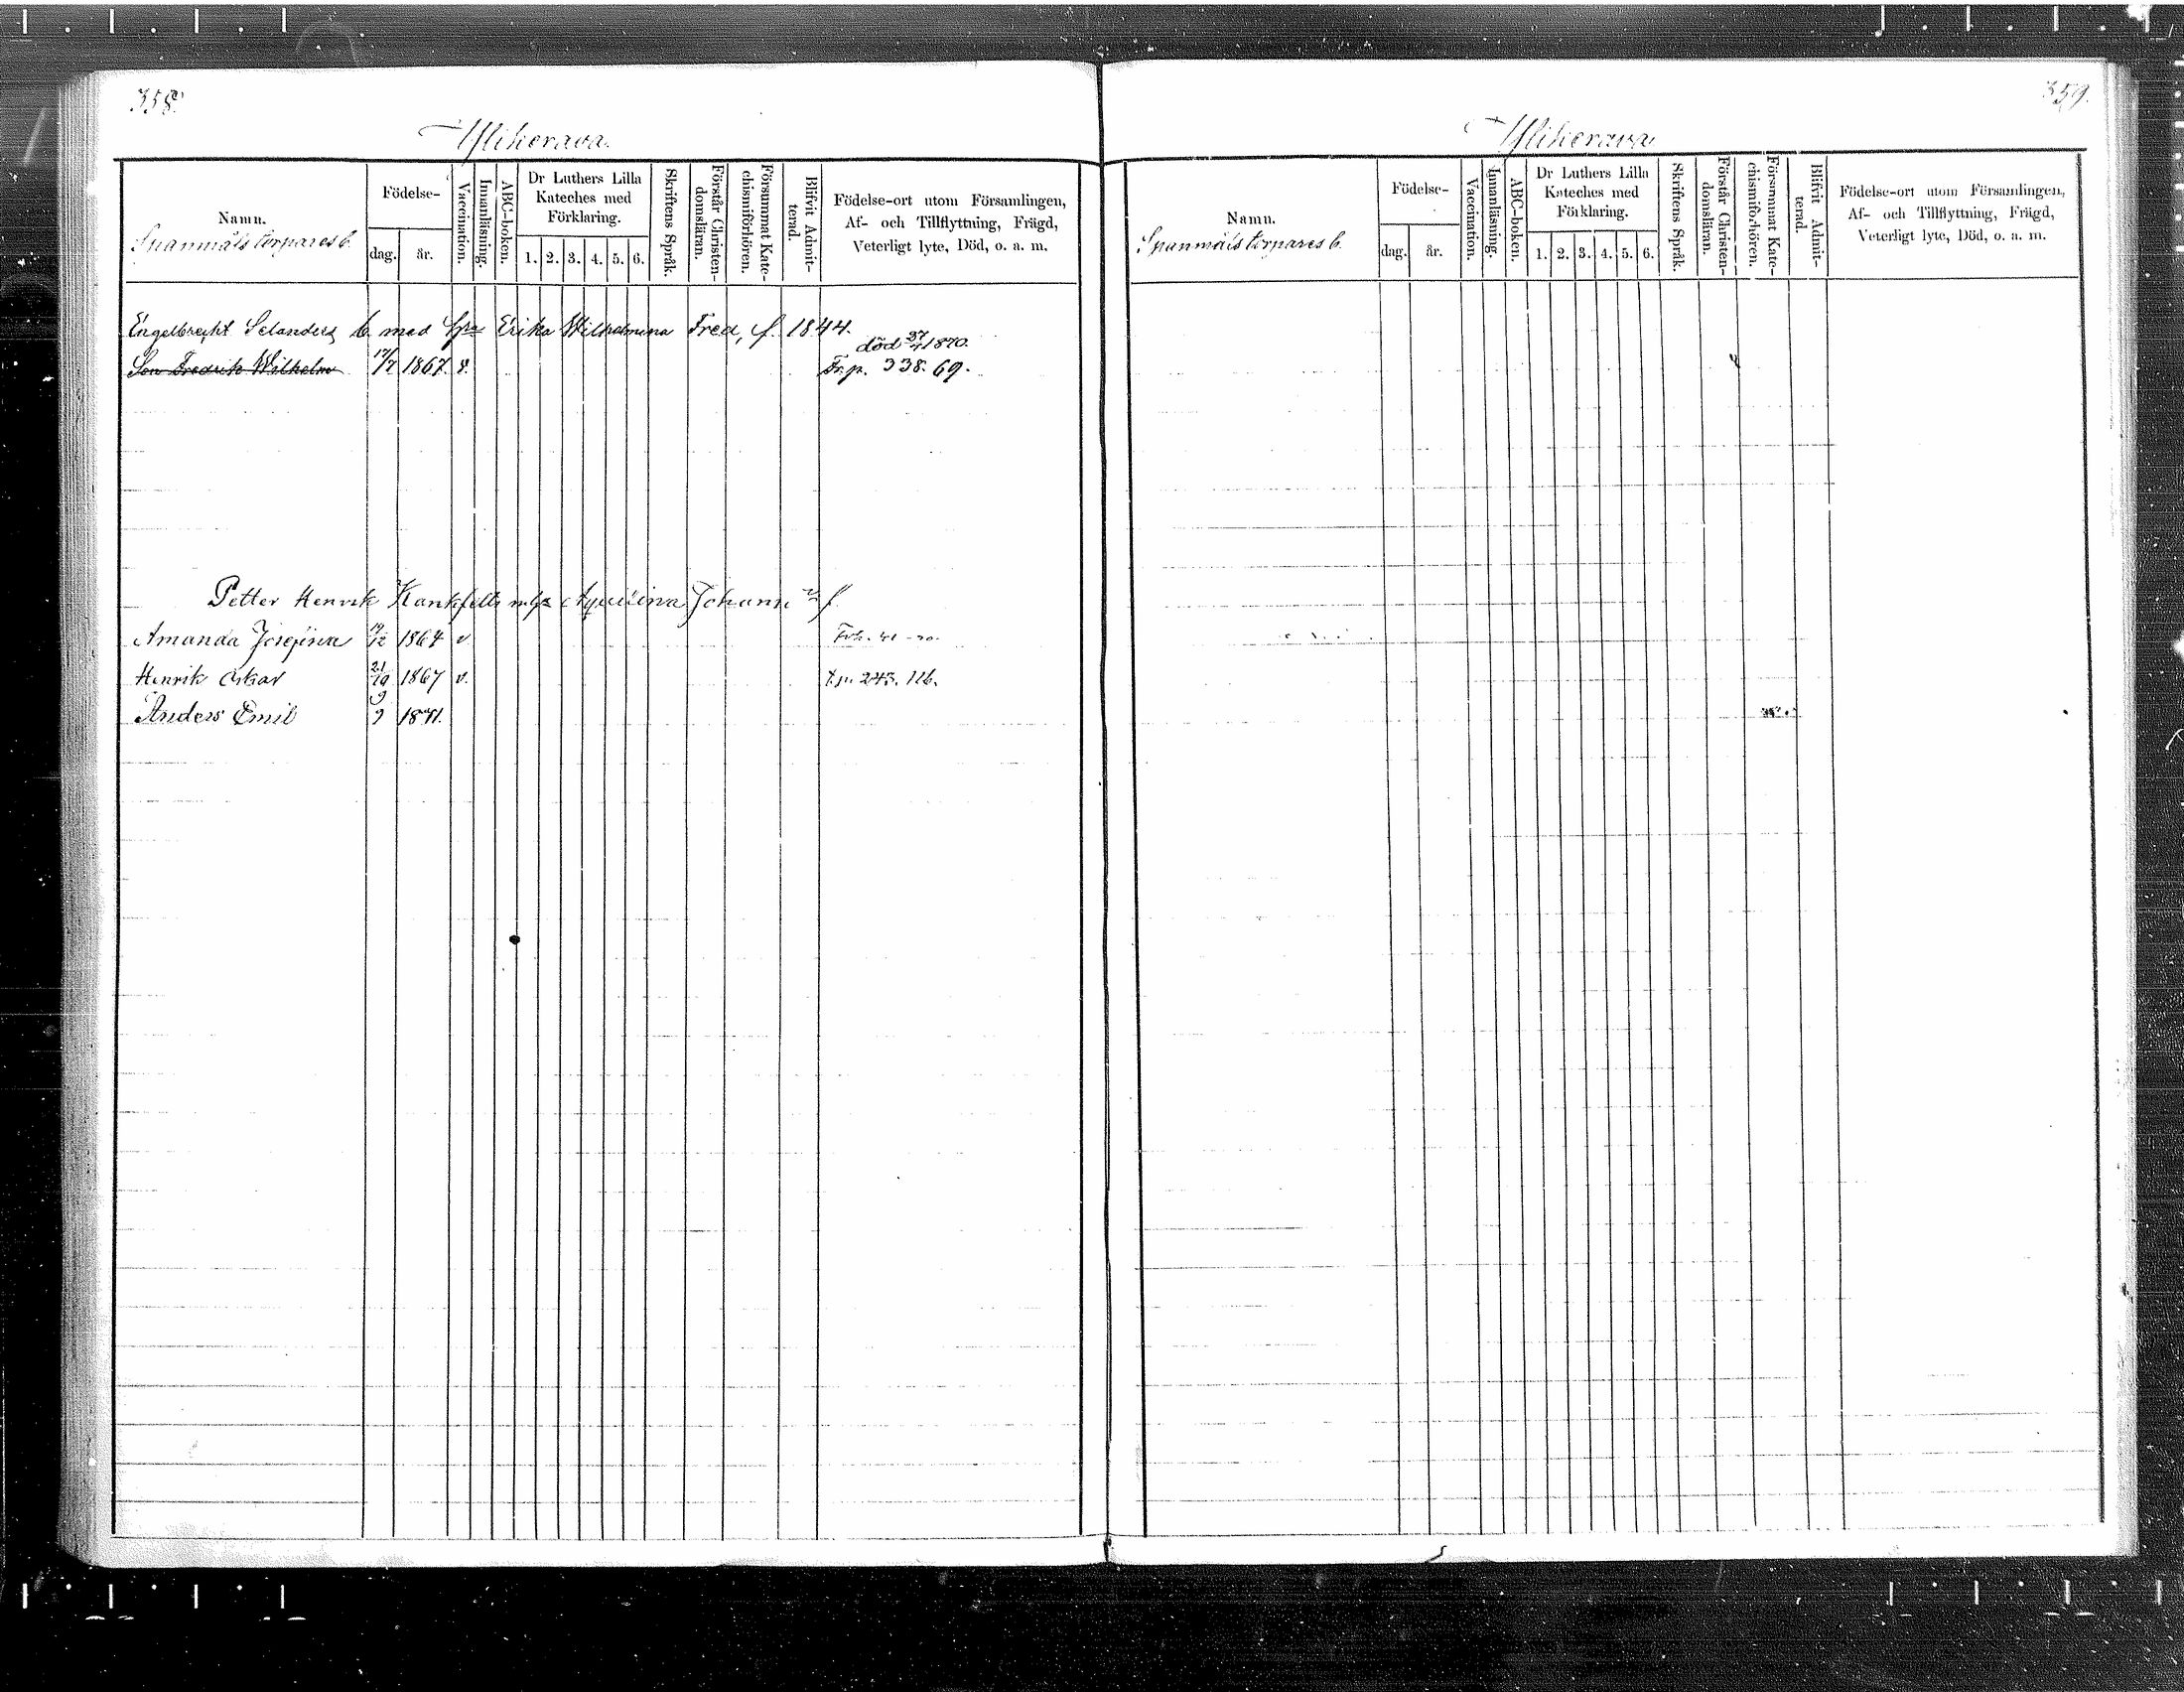 358.
Ylikerava.
Namn.
Spanmålstorpares b.
Födelse-
dag. år.
Vaccination.
Innanläsning.
ABC-boken.
Dr Luthers Lilla
Kateches med
Förklaring.
1. 2. 3. 4. 5. 6.
Skriftens Språk.
Förstår Christen-
domsläran.
Försummat Kate-
chismiförhören.
Blifvit Admit-
terad.
Födelse-ort utom Församlingen,
Af- och Tillflyttning, Frägd,
Veterligt lyte, Död, o. a. m.
Engelbrecht Selanders b. med hu Erika Wilhelmina Fred, f. 1844.
död 27/4 1870.
Son Fredrik Wilhelm 17/7 1867. v. Fr. p. 338. 69.
Petter Henrik Kankfelts Johans
Amanda Josefina 19/12 1864 v.
Henrik Oskar 21/10 1867 v. 243. 116.
Anders Emil 9/9 1871.
359.
Ylikerava
Namn.
Spanmålstorpares b.
Födelse-
dag. år.
Vaccination.
Innanläsning.
ABC-boken.
Dr Luthers Lilla
Kateches med
Förklaring.
1. 2. 3. 4. 5. 6.
Skriftens Språk.
Förstår Christen-
domsläran.
Försummat Kate-
chismiförhören.
Blifvit Admit-
terad.
Födelse-ort utom Församlingen,
Af- och Tillflyttning, Frägd,
Veterligt lyte, Död, o. a. m.